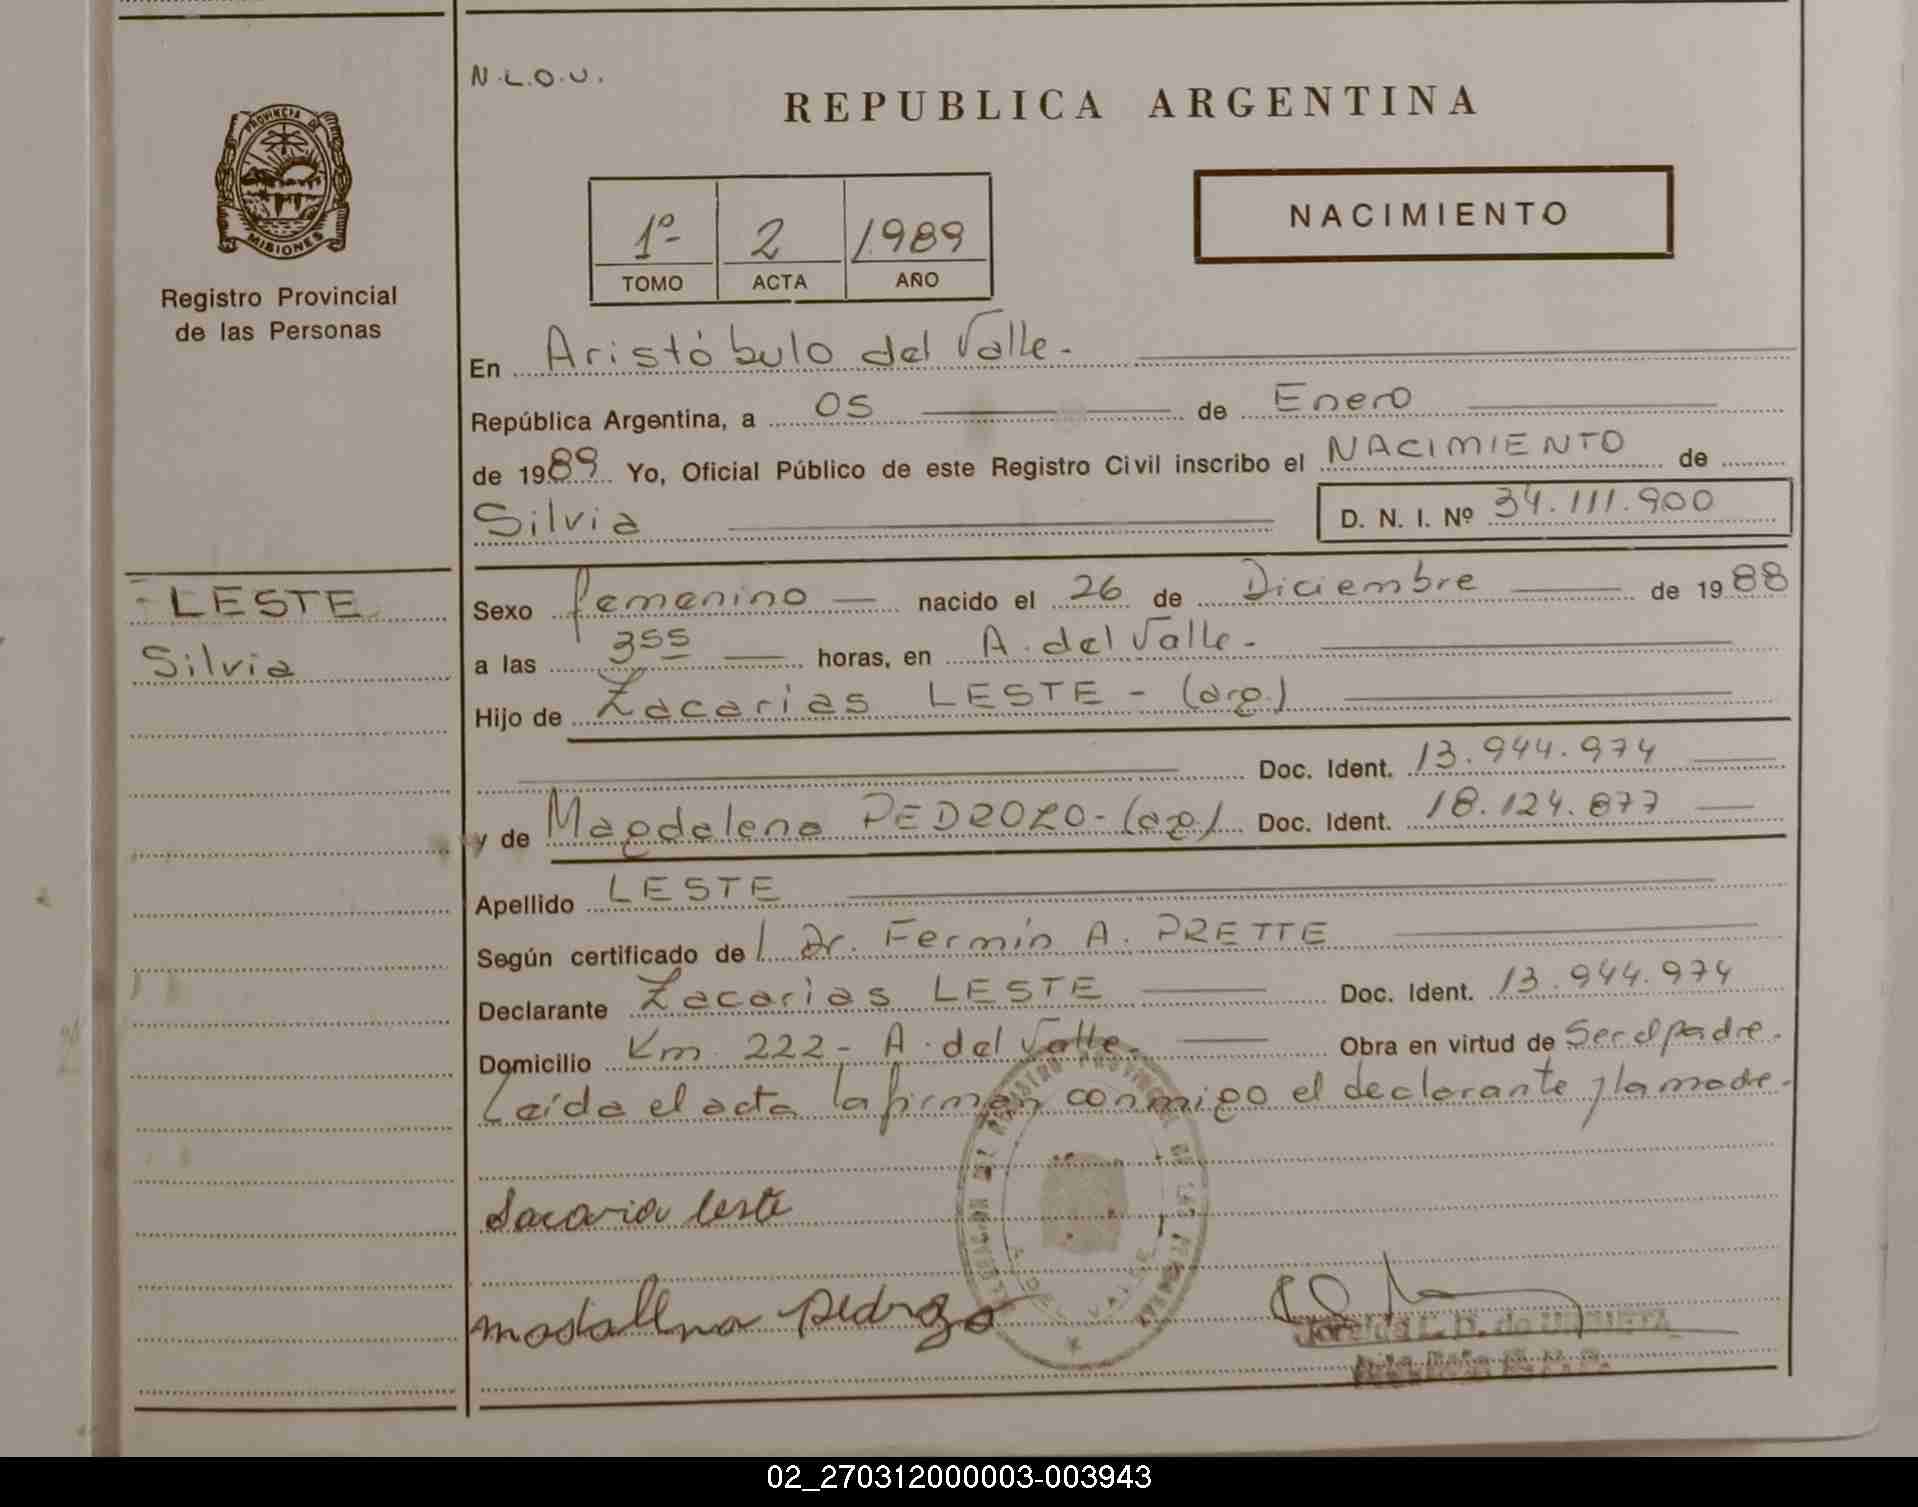 N.L.O.U.
REPUBLICA ARGENTINA
PROVINCIA DE
MISIONES
Registro Provincial
de las Personas
1º 2 1989
TOMO ACTA AÑO
NACIMIENTO
En Aristóbulo del Valle.-
República Argentina, a 05 de Enero
de 1989 Yo, Oficial Público de este Registro Civil inscribo el NACIMIENTO de
Silvia D. N. I. Nº 34.111.900
LESTE
Silvia
Sexo femenino nacido el 26 de Diciembre de 1988
a las 355 horas, en A. del Valle.-
Hijo de Zacarias LESTE - (arg.)
Doc. Ident. 13.944.974
y de Magdalena PEDROZO - (arg.) Doc. Ident. 18.124.877
Apellido LESTE
Según certificado de l Dr. Fermín A. PRETTE
Declarante Zacarias LESTE Doc. Ident. 13.944.974
Domicilio Km. 222 - A. del Valle.- Obra en virtud de Ser el padre.
Leída el acta la firman conmigo el declarante y la madre.-
Sacaria leste
A. DEL VALLE
02_270312000003-003943